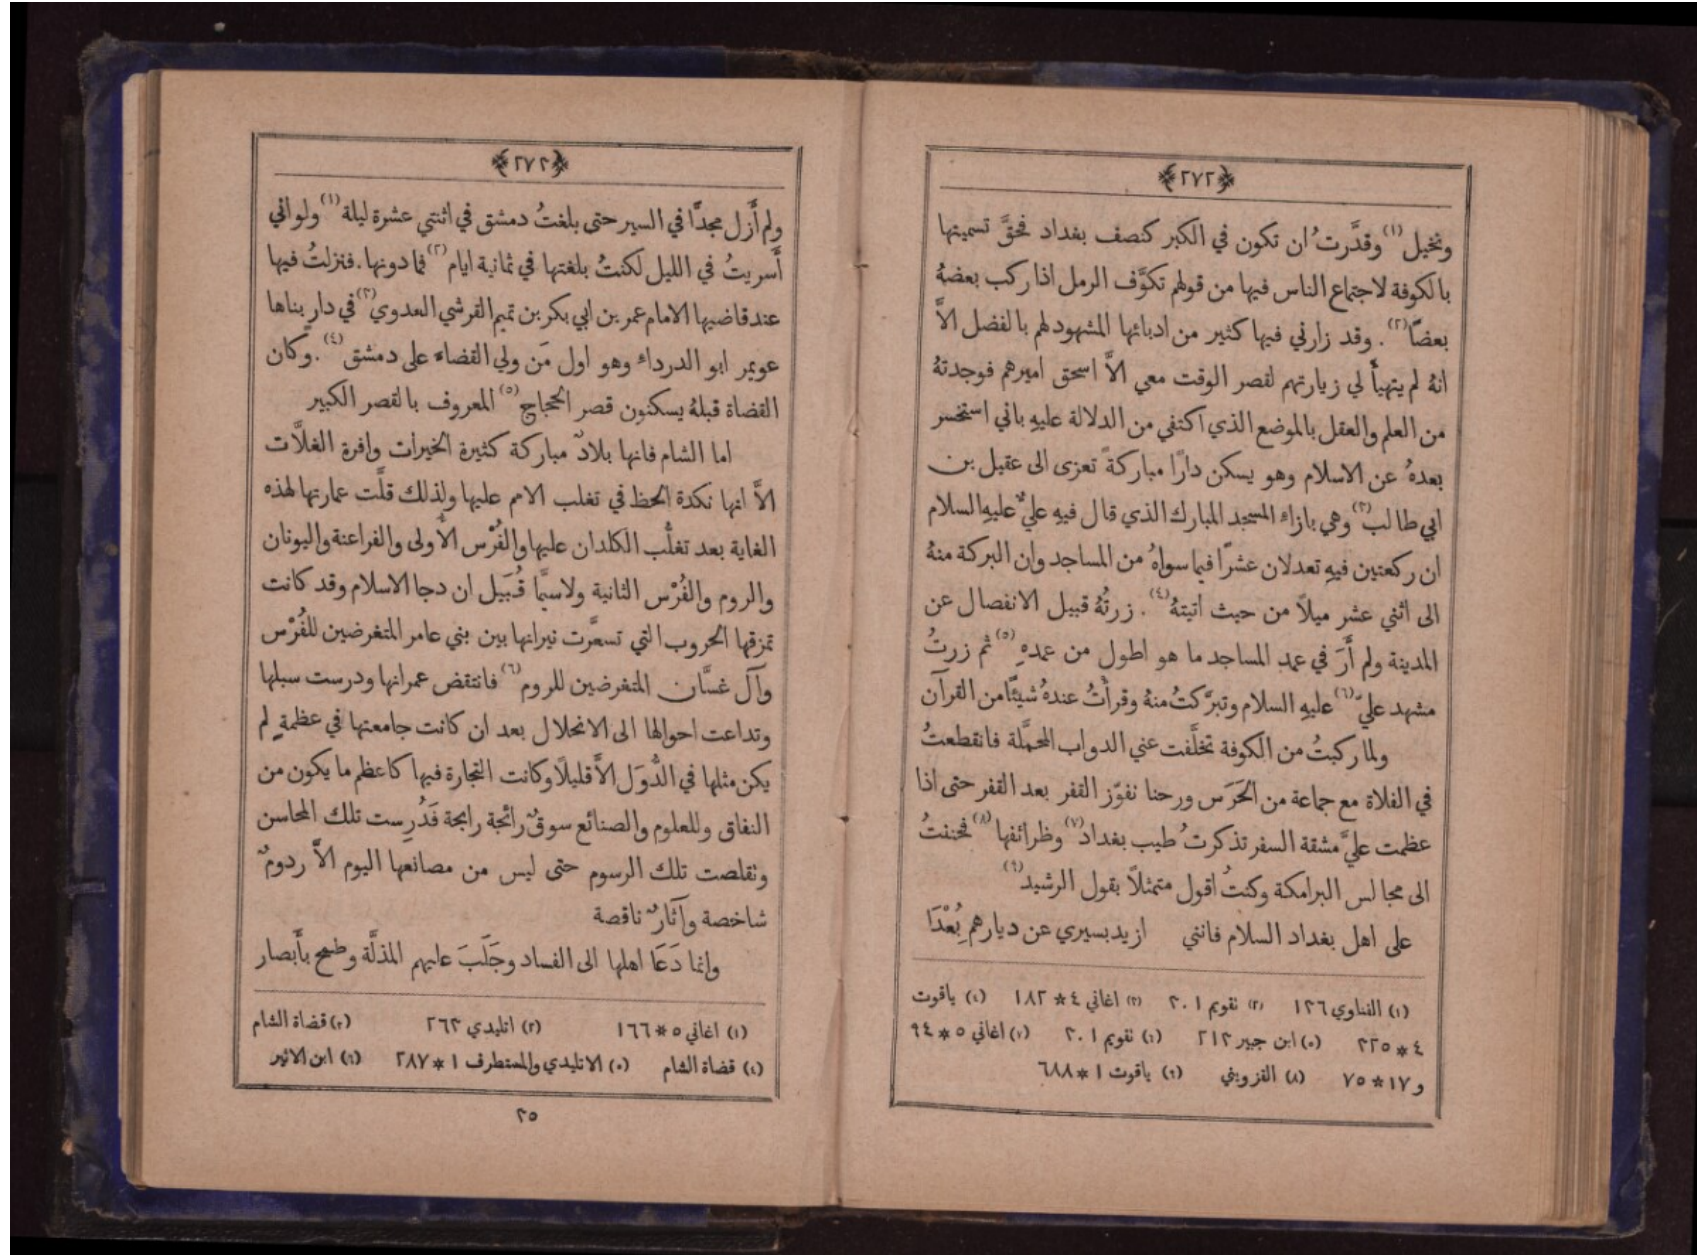 ﴿٢٧٢﴾
ونخيل (١) وقدَّرتُ ان تكون في الكبر كنصف بغداد فحقَّ تسميتها
بالكوفة لاجتماع الناس فيها من قولهم تكوَّف الرمل اذا ركب بعضهُ
بعضًا (٢) . وقد زارني فيها كثير من ادبائها المشهود لهم بالفضل الاَّ
انهُ لم يتهيأْ لي زيارتهم لقصر الوقت معي الاَّ اسحق اميرهم فوجدتهُ
من العلم والعقل بالموضع الذي اكتفي من الدلالة عليهِ باني استخسر
بعدهُ عن الاسلام وهو يسكن دارًا مباركةً تعزى الى عقيل بن
ابي طالب (٣) وهي بازاء المسجد المبارك الذي قال فيهِ عليٌّ عليهِ السلام
ان ركعتين فيهِ تعدلان عشرًا فيما سواهُ من المساجد وان البركة منهُ
الى اثني عشر ميلاً من حيث اتيتهُ (٤) . زرتُهُ قبيل الانفصال عن
المدينة ولم أَرَ في عمد المساجد ما هو اطول من عمدهِ (٥) ثم زرتُ
مشهد عليّ (٦) عليهِ السلام وتبرَّكتُ منهُ وقرأْتُ عندهُ شيئًا من القرآن
ولما ركبتُ من الكوفة تخلَّفت عني الدواب المحمَّلة فانقطعتُ
في الفلاة مع جماعة من الحَرَس ورحنا نفوّز القفر بعد القفر حتى اذا
عظمت عليَّ مشقة السفر تذكرتُ طيب بغداد (٧) وظرائفها (٨) فحننتُ
الى مجالس البرامكة وكنتُ اقول متمثلاً بقول الرشيد (٩)
على اهل بغداد السلام فانني ازيد بسيري عن ديارهم بُعْدَا
(١) الفناوي ١٢٦ (٢) تقويم ٣٠١ (٣) اغاني ٤ * ١٨٢ (٤) ياقوت
٤ * ٣٢٥ (٥) ابن جبير ٢١٢ (٦) تقويم ٣٠١ (٧) اغاني ٥ * ٩٤
و ١٧ * ٧٥ (٨) القزويني (٩) ياقوت ١ * ٦٨٨
﴿٢٧٣﴾
ولم أَزل مجدًّا في السير حتى بلغتُ دمشق في اثنتي عشرة ليلة (١) ولو اني
أَسريتُ في الليل لكنتُ بلغتها في ثمانية ايام (٢) فما دونها. فنزلتُ فيها
عند قاضيها الامام عمر بن ابي بكر بن تميم القرشي العدوي (٣) في دارٍ بناها
عويمر ابو الدرداء وهو اول مَن ولي القضاء على دمشق (٤) . وكان
القضاة قبلهُ يسكنون قصر الحجاج (٥) المعروف بالقصر الكبير
اما الشام فانها بلادٌ مباركة كثيرة الخيرات وافرة الغلَّات
الاَّ انها نكدة الحظ في تغلب الامم عليها ولذلك قلَّت عمارتها لهذه
الغاية بعد تغلُّب الكلدان عليها والفُرْس الأُولى والفراعنة واليونان
والروم والفُرْس الثانية ولاسيَّما قُبَيل ان دجا الاسلام وقد كانت
تمزقها الحروب التي تسعَّرت نيرانها بين بني عامر المتغرضين للفُرْس
وآل غسَّان المتغرضين للروم (٦) فانتقض عمرانها ودرست سبلها
وتداعت احوالها الى الانحلال بعد ان كانت جامعتها في عظمةٍ لم
يكن مثلها في الدُّوَل الاَّ قليلاً وكانت التجارة فيها كاعظم ما يكون من
النفاق وللعلوم والصنائع سوقٌ رائجة رابحة فَدُرِست تلك المحاسن
وتقلصت تلك الرسوم حتى ليس من مصانعها اليوم الاَّ ردومٌ
شاخصة وآثارٌ ناقصة
وانما دَعَا اهلها الى الفساد وجَلَبَ عليهم المذلَّة وطمح بأَبصار
(١) اغاني ٥ * ١٦٦ (٢) اتليدي ٢٦٣ (٣) قضاة الشام
(٤) قضاة الشام (٥) الاتليدي والمستطرف ١ * ٢٨٧ (٦) ابن الاثير
٣٥